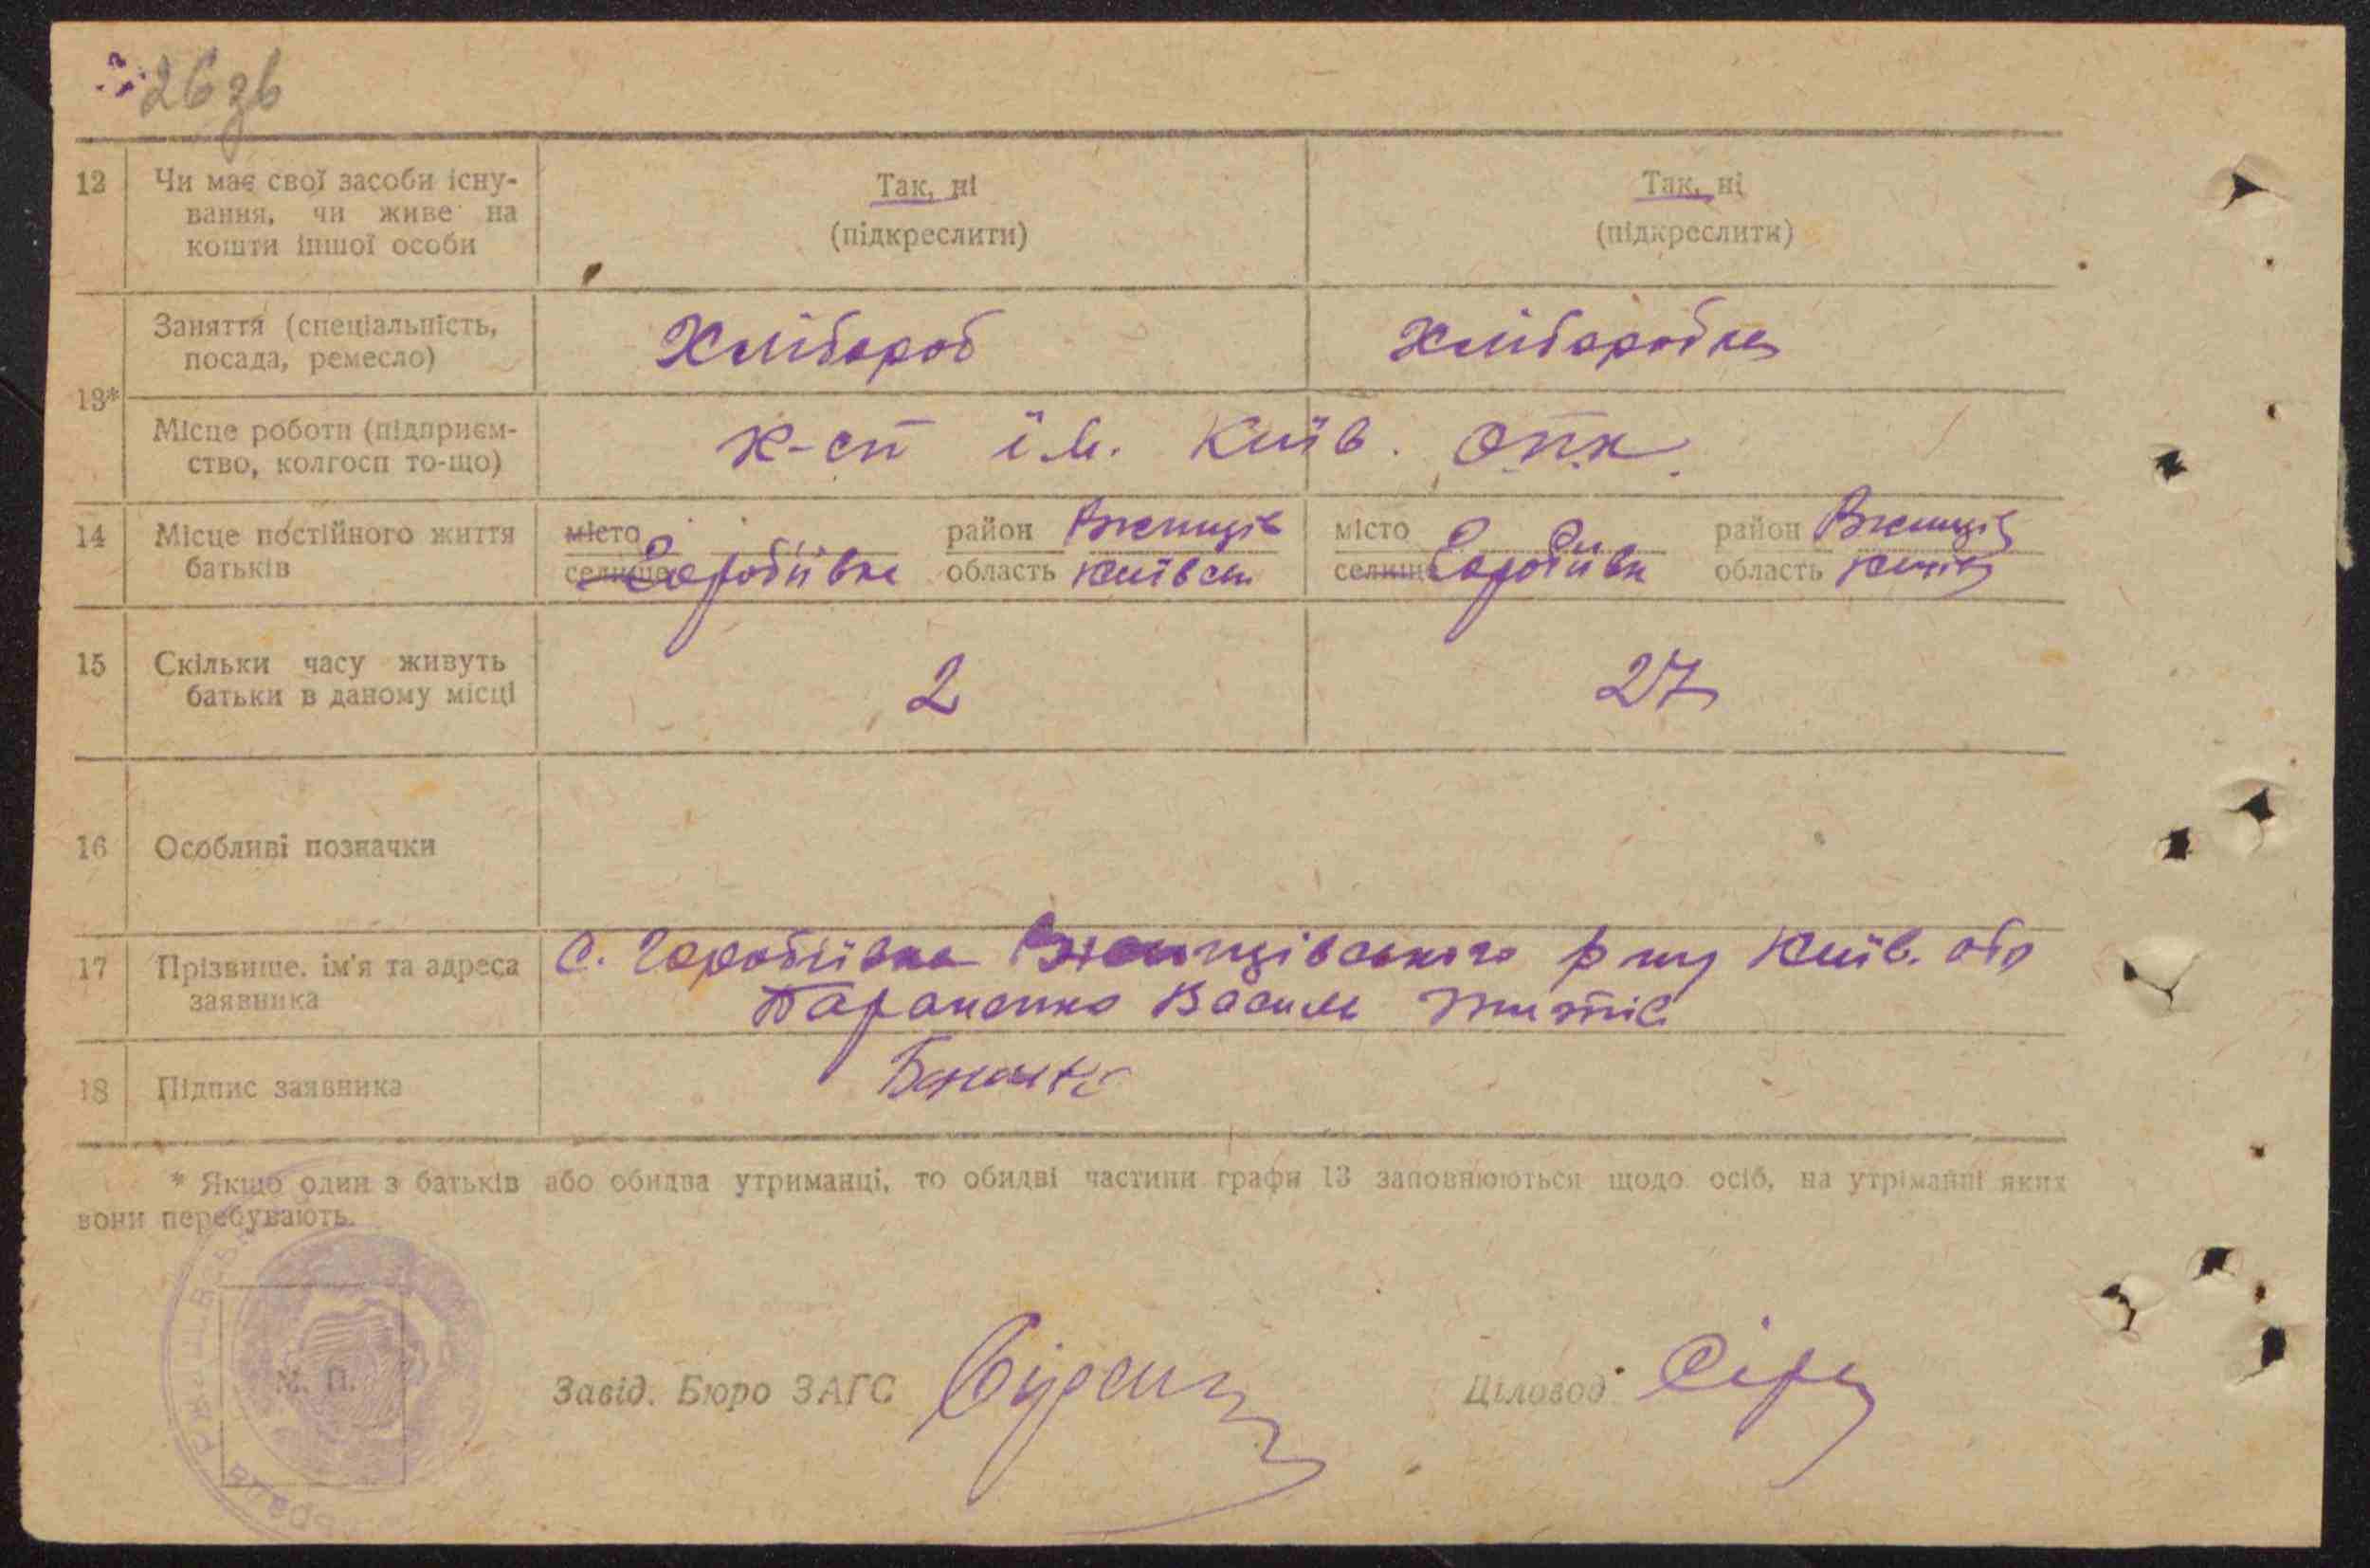 26 зв
12 Чи має свої засоби існу- Так, ні Так, ні
вання, чи живе на (підкреслити) (підкреслити)
кошти іншої особи
13* Заняття (спеціальність, Хлібороб Хліборобка
посада, ремесло)
Місце роботи (підприєм- к-сп ім. Київ. опк.
ство, колгосп то-що)
14 Місце постійного життя місто район Ржищів місто район Ржищів
батьків селище Горобіївка область Київськ селище Горобіївка область Київ
15 Скільки часу живуть 2 27
батьки в даному місці
16 Особливі позначки
17 Прізвище, ім'я та адреса с. Горобіївка Ржищівського р-ну Київ. обл
заявника Тараненко Василь
18 Підпис заявника
* Якщо один з батьків або обидва утриманці, то обидві частини графи 13 заповнюються щодо осіб, на утріманні яких
вони перебувають.
М. П.
Завід. Бюро ЗАГС Діловод